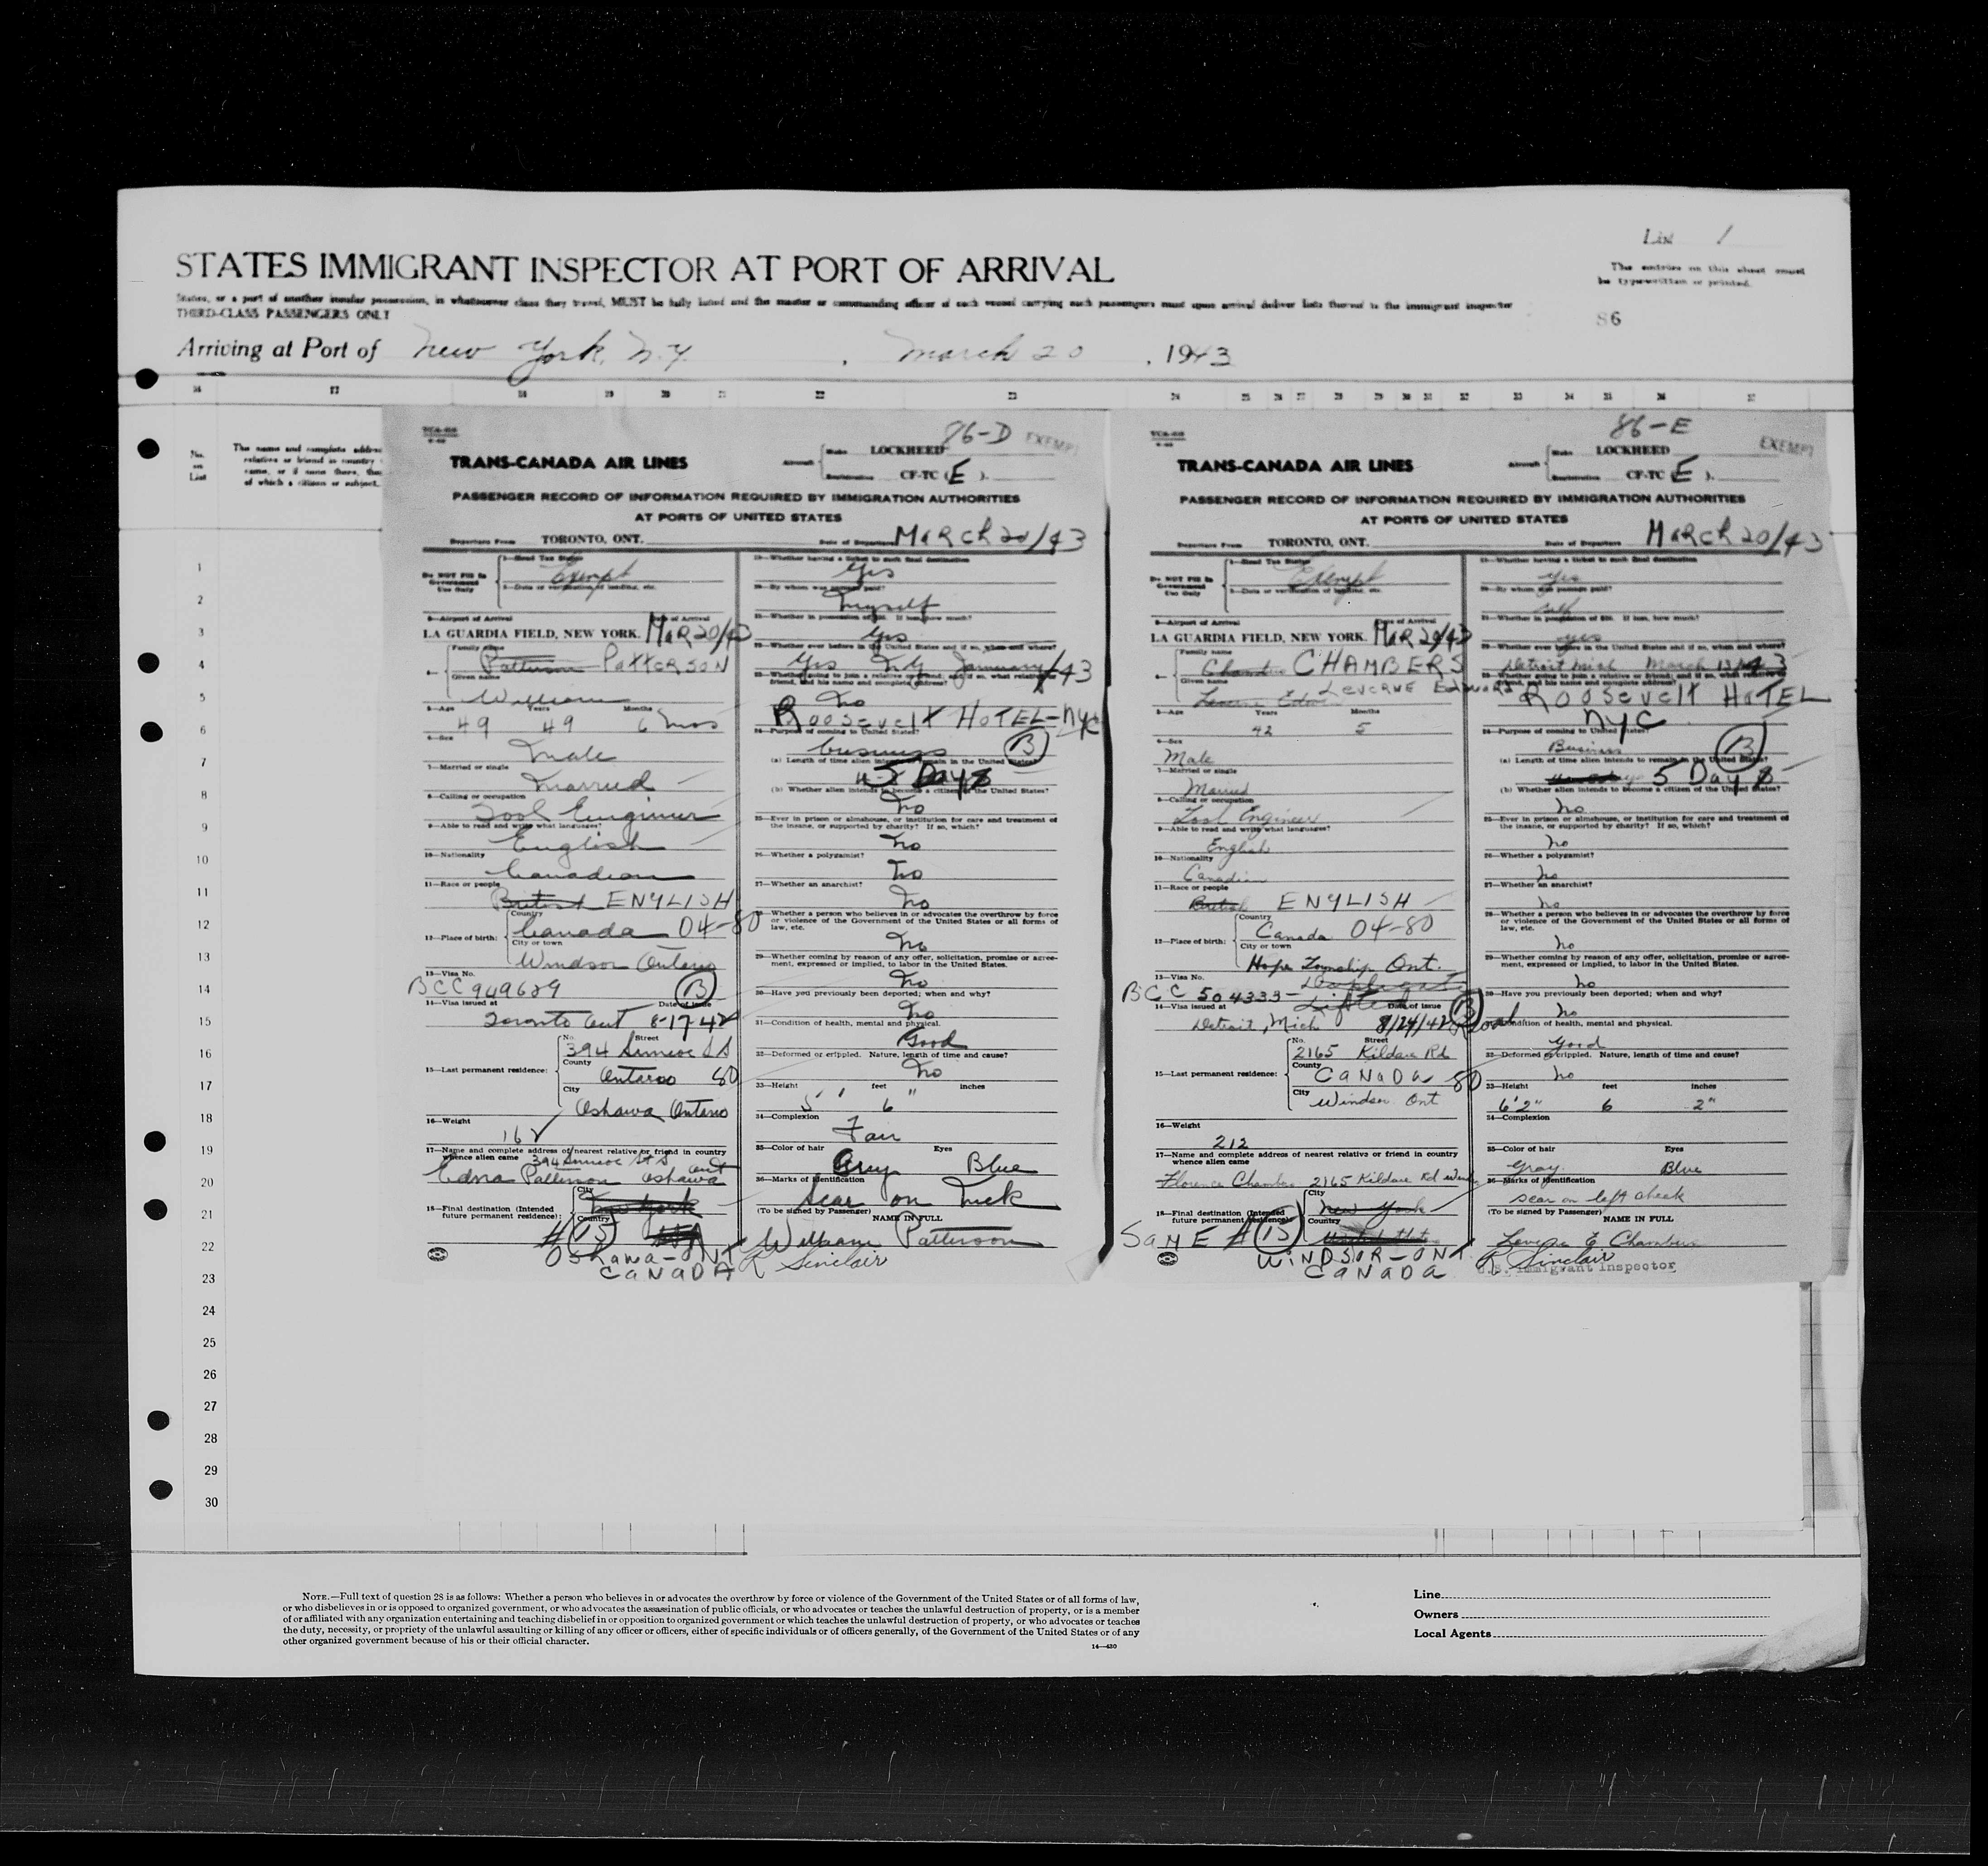 List 1
STATES IMMIGRANT INSPECTOR AT PORT OF ARRIVAL
The entries on this sheet must
be typewritten or printed.
States, or a port of another insular possession, in whatsoever class they travel, MUST be fully listed and the master or commanding officer of each vessel carrying such passengers must upon arrival deliver lists thereof to the immigrant inspector
THIRD-CLASS PASSENGERS ONLY
86
Arriving at Port of New York, N.Y. , March 20 , 1943
16 17 18 19 20 21 22 23 24 25 26 27 28 29 30 31 32 33 34 35 36 37
No.
on
List
The name and complete address
relative or friend in country
came, or if none there, then
of which a citizen or subject.
1
2
3
4
5
6
7
8
9
10
11
12
13
14
15
16
17
18
19
20
21
22
23
24
25
26
27
28
29
30
86-D EXEMPT
TRANS-CANADA AIR LINES
Aircraft Make LOCKHEED
Registration CF-TC (E).
PASSENGER RECORD OF INFORMATION REQUIRED BY IMMIGRATION AUTHORITIES
AT PORTS OF UNITED STATES
Departure From TORONTO, ONT. Date of Departure MARCH 20/43
Do NOT Fill In
Government
Use Only
1—Head Tax Status
Exempt
2—Date or verification of landing, etc.
3—Airport of Arrival Date of Arrival
LA GUARDIA FIELD, NEW YORK. MAR 20/43
4— Family name
Patterson PATTERSON
Given name
William
5—Age Years Months
49 49 6 mos
6—Sex
Male
7—Married or single
Married
8—Calling or occupation
Tool Engineer
9—Able to read and write what languages?
English
10—Nationality
Canadian
11—Race or people
British ENYLISH
12—Place of birth: Country
Canada 04-80
City or town
Windsor Ontario
13—Visa No.
BCC 949629 B
14—Visa issued at Date of issue
Toronto Ont 8-17-42
15—Last permanent residence: No. Street
394 Simcoe St S
County
Ontario 80
City
Oshawa Ontario
16—Weight
162
17—Name and complete address of nearest relative or friend in country
whence alien came 394 Simcoe St S
Edna Patterson Oshawa Ont
18—Final destination (Intended
future permanent residence): City
New York
Country
USA
# 15
OSHAWA-ONT
CANADA
19—Whether having a ticket to such final destination
Yes
20—By whom was passage paid?
Myself
21—Whether in possession of $50. If less, how much?
Yes
22—Whether ever before in the United States and if so, when and where?
Yes N.Y. January/43
23—Whether going to join a relative or friend; and if so, what relative or
friend, and his name and complete address?
No
ROOSEVELT HOTEL-NYC
24—Purpose of coming to United States?
business B
(a) Length of time alien intends to remain in the United States?
5 Days
(b) Whether alien intends to become a citizen of the United States?
No
25—Ever in prison or almshouse, or institution for care and treatment of
the insane, or supported by charity? If so, which?
No
26—Whether a polygamist?
No
27—Whether an anarchist?
No
28—Whether a person who believes in or advocates the overthrow by force
or violence of the Government of the United States or all forms of
law, etc.
No
29—Whether coming by reason of any offer, solicitation, promise or agree-
ment, expressed or implied, to labor in the United States.
No
30—Have you previously been deported; when and why?
No
31—Condition of health, mental and physical.
Good
32—Deformed or crippled. Nature, length of time and cause?
No
33—Height feet inches
5' 6"
34—Complexion
Fair
35—Color of hair Eyes
Grey Blue
36—Marks of identification
Scar on Neck
(To be signed by Passenger) NAME IN FULL
William Patterson
R Sinclair
86-E EXEMPT
TRANS-CANADA AIR LINES
Aircraft Make LOCKHEED
Registration CF-TC E).
PASSENGER RECORD OF INFORMATION REQUIRED BY IMMIGRATION AUTHORITIES
AT PORTS OF UNITED STATES
Departure From TORONTO, ONT. Date of Departure MARCH 20/43
Do NOT Fill In
Government
Use Only
1—Head Tax Status
Exempt
2—Date or verification of landing, etc.
3—Airport of Arrival Date of Arrival
LA GUARDIA FIELD, NEW YORK. MAR 20/43
4— Family name
Chambers CHAMBERS
Given name
LEVERNE EDWARD
5—Age Years Months
42 5
6—Sex
Male
7—Married or single
Married
8—Calling or occupation
Tool Engineer
9—Able to read and write what languages?
English
10—Nationality
Canadian
11—Race or people
British ENYLISH
12—Place of birth: Country
Canada 04-80
City or town
Hope Township Ont.
13—Visa No.
BCC 504333- Duplicate
14—Visa issued at Date of issue
Detroit, Mich 8/24/42
15—Last permanent residence: No. Street
2165 Kildare Rd
County
CANADA 80
City
Windsor Ont
16—Weight
212
17—Name and complete address of nearest relative or friend in country
whence alien came
Florence Chambers 2165 Kildare Rd Windsor
18—Final destination (Intended
future permanent residence): City
New York
Country
United States
SAME # 15
WINDSOR-ONT
CANADA
19—Whether having a ticket to such final destination
yes
20—By whom was passage paid?
self
21—Whether in possession of $50. If less, how much?
yes
22—Whether ever before in the United States and if so, when and where?
Detroit Mich March 13/43
23—Whether going to join a relative or friend; and if so, what relative or
friend, and his name and complete address?
ROOSEVELT HOTEL
NYC
24—Purpose of coming to United States?
Business B
(a) Length of time alien intends to remain in the United States?
5 Days
(b) Whether alien intends to become a citizen of the United States?
No
25—Ever in prison or almshouse, or institution for care and treatment of
the insane, or supported by charity? If so, which?
No
26—Whether a polygamist?
No
27—Whether an anarchist?
No
28—Whether a person who believes in or advocates the overthrow by force
or violence of the Government of the United States or all forms of
law, etc.
No
29—Whether coming by reason of any offer, solicitation, promise or agree-
ment, expressed or implied, to labor in the United States.
No
30—Have you previously been deported; when and why?
No
31—Condition of health, mental and physical.
Good
32—Deformed or crippled. Nature, length of time and cause?
No
33—Height feet inches
6'2" 6 2"
34—Complexion
35—Color of hair Eyes
Gray Blue
36—Marks of identification
scar on left cheek
(To be signed by Passenger) NAME IN FULL
Leverne E Chambers
R Sinclair
U.S. Immigrant Inspector
NOTE.—Full text of question 28 is as follows: Whether a person who believes in or advocates the overthrow by force or violence of the Government of the United States or of all forms of law,
or who disbelieves in or is opposed to organized government, or who advocates the assassination of public officials, or who advocates or teaches the unlawful destruction of property, or is a member
of or affiliated with any organization entertaining and teaching disbelief in or opposition to organized government or which teaches the unlawful destruction of property, or who advocates or teaches
the duty, necessity, or propriety of the unlawful assaulting or killing of any officer or officers, either of specific individuals or of officers generally, of the Government of the United States or of any
other organized government because of his or their official character.
14—430
Line
Owners
Local Agents